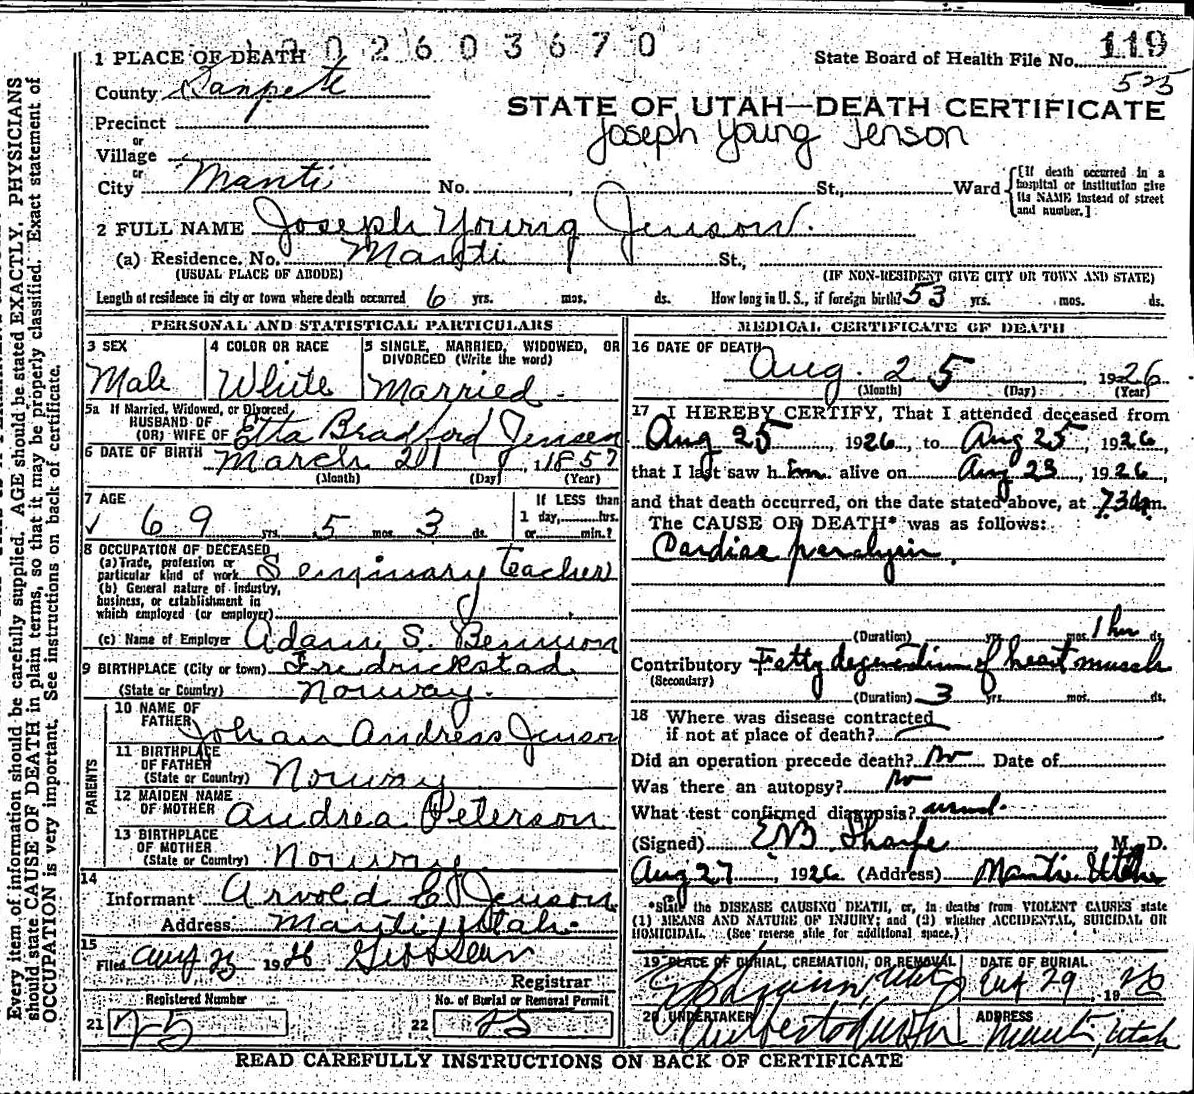 1002603670
1 PLACE OF DEATH
State Board of Health File No. 119
525
County Sanpete
STATE OF UTAH—DEATH CERTIFICATE
Precinct
Joseph Young Jenson
or
Village
or
City Manti No. St., Ward [If death occurred in a hospital or institution give its NAME instead of street and number.]
2 FULL NAME Joseph Young Jenson.
(a) Residence, No. Manti St.,
(USUAL PLACE OF ABODE) (IF NON-RESIDENT GIVE CITY OR TOWN AND STATE)
Length of residence in city or town where death occurred 6 yrs. mos. ds. How long in U. S., if foreign birth? 53 yrs. mos. ds.
PERSONAL AND STATISTICAL PARTICULARS
3 SEX
Male
4 COLOR OR RACE
White
5 SINGLE, MARRIED, WIDOWED, OR DIVORCED (Write the word)
Married
5a If Married, Widowed, or Divorced
HUSBAND OF
(OR) WIFE OF Etta Bradford Jensen
6 DATE OF BIRTH March 20 1857
(Month) (Day) (Year)
7 AGE
✓ 69 yrs. 5 mos. 3 ds.
If LESS than
1 day, hrs.
or min.?
8 OCCUPATION OF DECEASED
(a) Trade, profession or
particular kind of work Seminary teacher
(b) General nature of industry,
business, or establishment in
which employed (or employer)
(c) Name of Employer Adam S. Bennion
9 BIRTHPLACE (City or town) Fredrickstad
(State or Country) Norway.
PARENTS
10 NAME OF
FATHER Johan Andreas Jenson
11 BIRTHPLACE
OF FATHER
(State or Country) Norway
12 MAIDEN NAME
OF MOTHER Andrea Peterson
13 BIRTHPLACE
OF MOTHER
(State or Country) Norway
14
Informant Arvold C Jenson
Address Manti, Utah.
15
Filed Aug 1926
Registrar
Registered Number
21 25
No. of Burial or Removal Permit
22 25
MEDICAL CERTIFICATE OF DEATH
16 DATE OF DEATH
Aug. 25, 1926
(Month) (Day) (Year)
17 I HEREBY CERTIFY, That I attended deceased from
Aug 25, 1926, to Aug 25, 1926,
that I last saw him alive on Aug 23, 1926,
and that death occurred, on the date stated above, at 730 m.
The CAUSE OF DEATH* was as follows:
Cardiac paralysis
(Duration) yrs. mos. 1 hr ds.
Contributory Fatty degeneration of heart muscle
(Secondary)
(Duration) 3 yrs. mos. ds.
18 Where was disease contracted
if not at place of death?
Did an operation precede death? No Date of
Was there an autopsy? No
What test confirmed diagnosis? usual.
(Signed) Sharpe, M. D.
Aug 27, 1926 (Address) Manti Utah
*State the DISEASE CAUSING DEATH, or, in deaths from VIOLENT CAUSES state
(1) MEANS AND NATURE OF INJURY; and (2) whether ACCIDENTAL, SUICIDAL OR
HOMICIDAL. (See reverse side for additional space.)
19 PLACE OF BURIAL, CREMATION, OR REMOVAL
Ephraim, Utah
DATE OF BURIAL
Aug 29 1926
20 UNDERTAKER
ADDRESS
Manti, Utah
READ CAREFULLY INSTRUCTIONS ON BACK OF CERTIFICATE
Every item of information should be carefully supplied. AGE should be stated EXACTLY. PHYSICIANS
should state CAUSE OF DEATH in plain terms, so that it may be properly classified. Exact statement of
OCCUPATION is very important. See instructions on back of certificate.